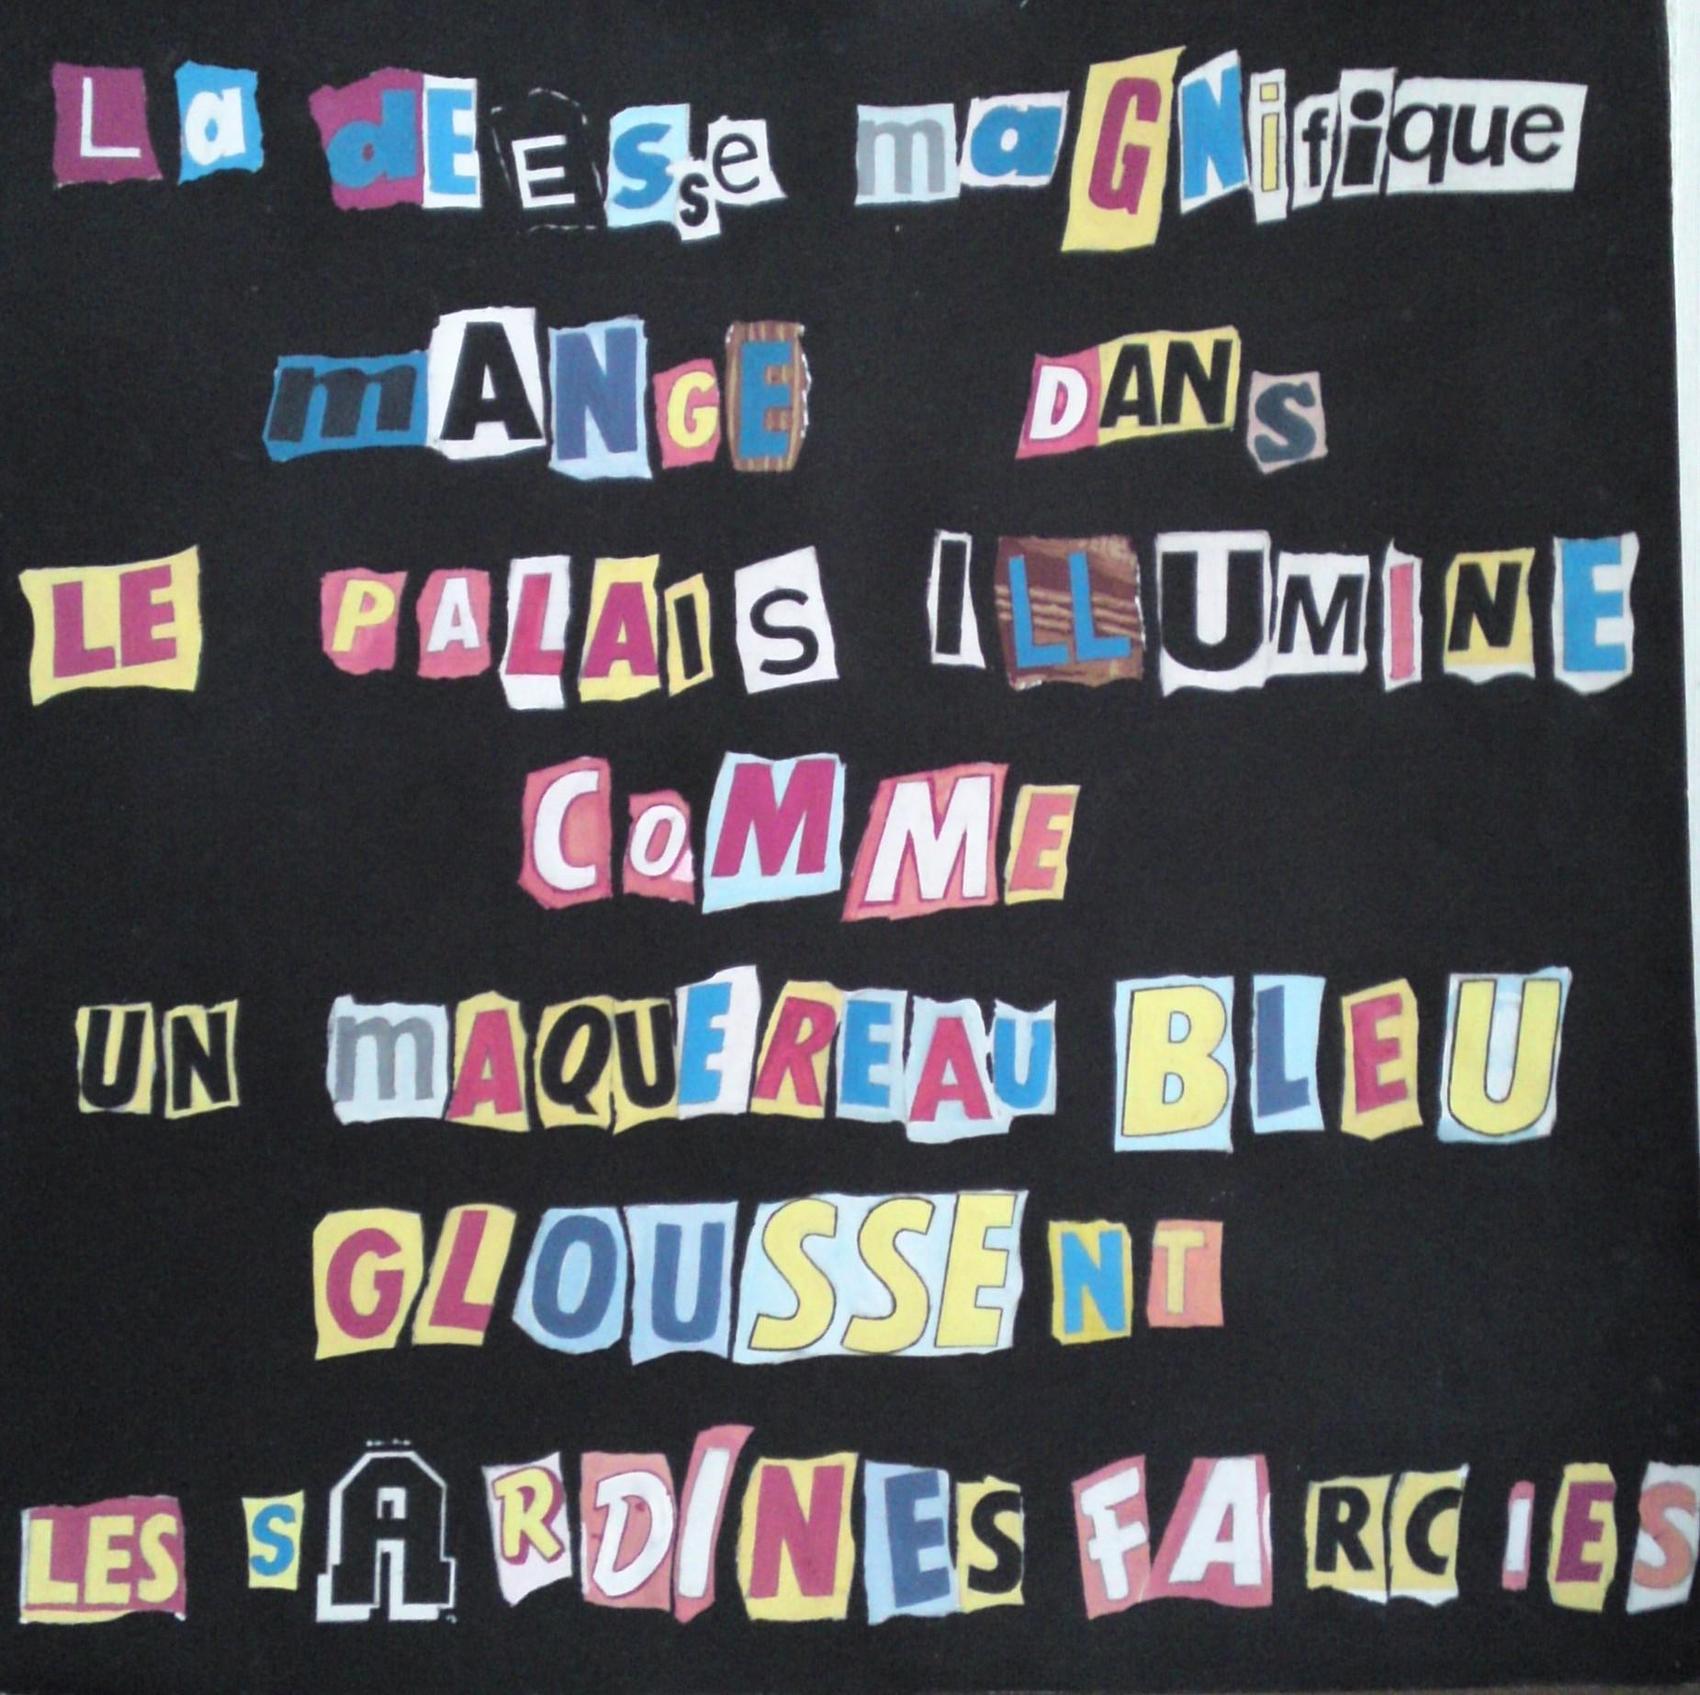 La dEEsse maGNifique
mANGE DANS
LE PALAIS ILLUMINE
CoMME
UN mAQUEREAU BLEU
GLOUSSENT
LES SARDINES FARCIES